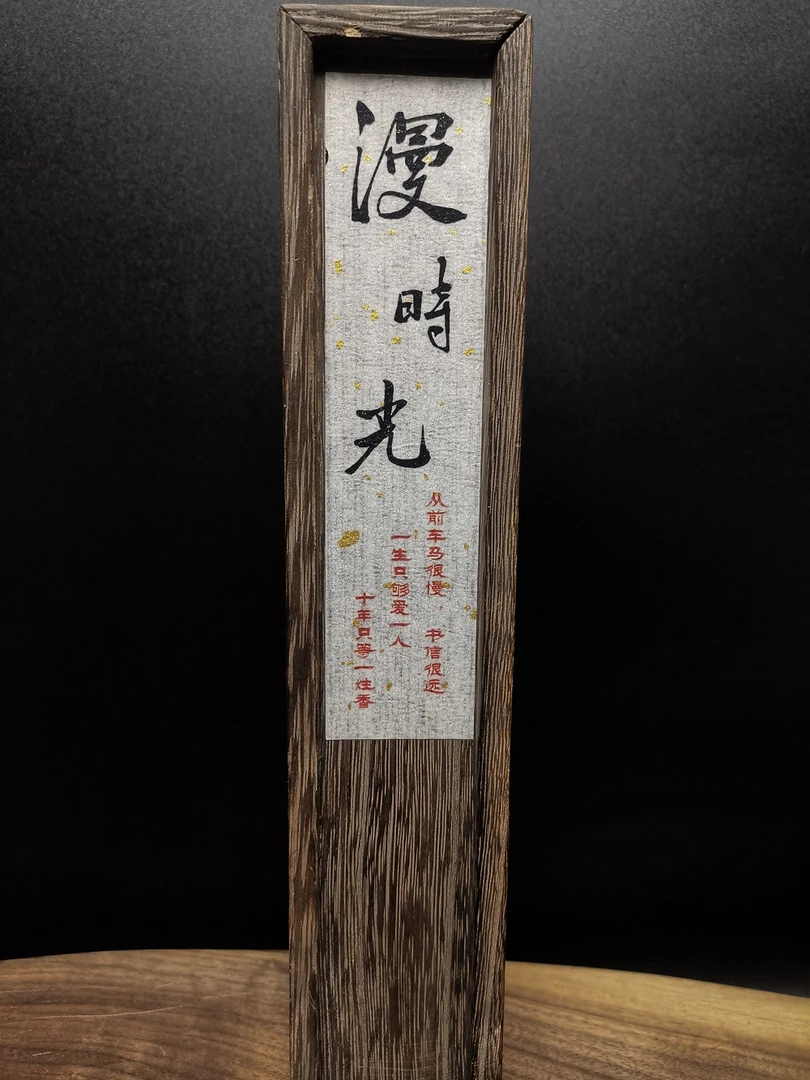 漫時光
从前车马很慢，书信很远
一生只够爱一人
十年只等一炷香